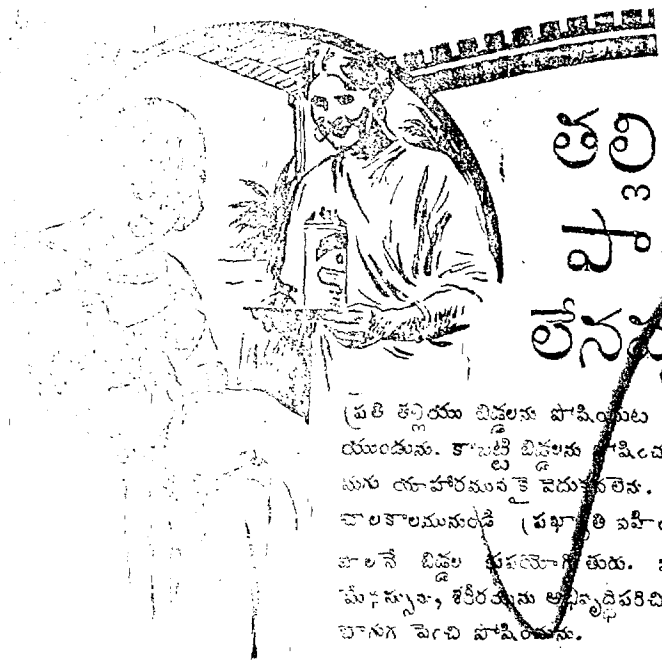 తల్లి
పా
లేన
ప్రతి తల్లియు బిడ్డలను పోషియుట
యుండును. కాబట్టి బిడ్డలను పోషించ
మగు యాహారమునకై వెదుకవలెను.
చాలకాలమునుండి ప్రఖ్యాతి
పాలనే బిడ్డల కుపయోగి తురు.
మేనస్సును, శరీరమును అభివృద్ధిపరిచి
బాగుగ పెంచి పోషించును.